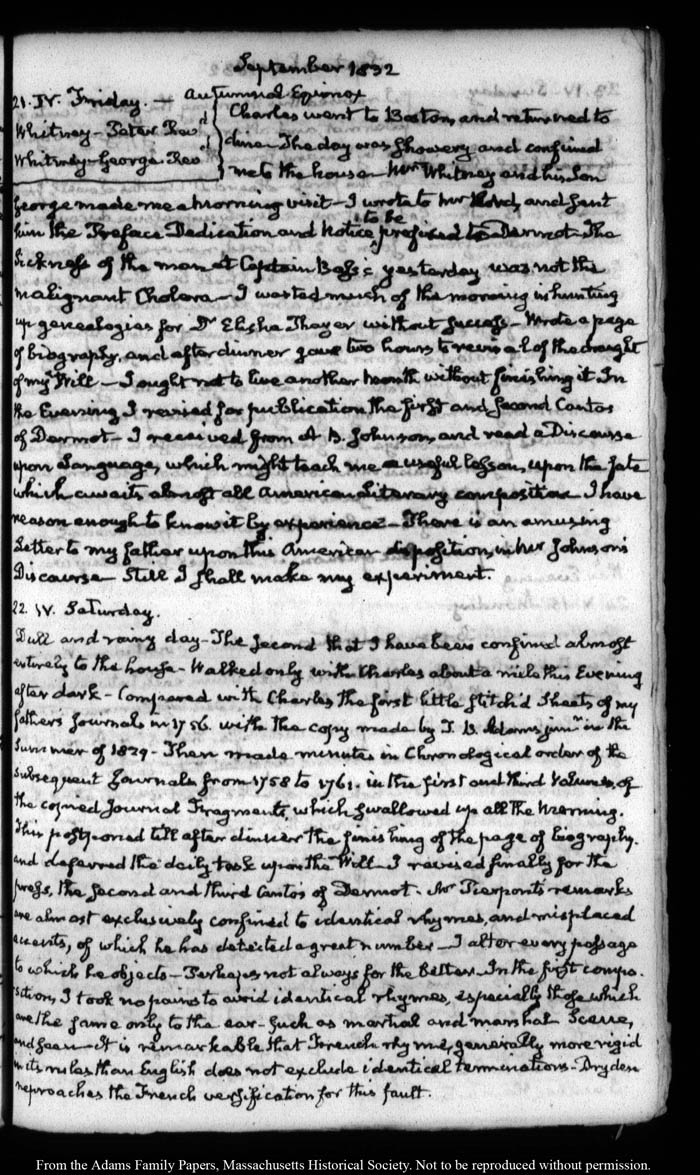 September 1832
21. IV. Friday. — Autumnal Equinox
Whitney - Peter Rev.d
Whitney - George. Rev.d
Charles went to Boston, and returned to
dine. The day was showery and confined
me to the house. Mr. Whitney and his son
George made me a morning visit - I wrote to Mr. Hord, and sent
him the Preface Dedication and Notice to be prefixed to Dermot - The
sickness of the man at Captain Bass's yesterday was not the
malignant Cholera - I wasted much of the morning in hunting
up genealogies for Dr. Elisha Thayer without success - Wrote a page
of biography, and after dinner gave two hours to revisal of the draught
of my Will - I ought not to live another month without finishing it. In
the Evening I revised for publication the first and second Cantos
of Dermot - I received from A. B. Johnson, and read a Discourse
upon Language, which might teach me a useful lesson, upon the fate
which awaits almost all American Literary composition. I have
reason enough to know it by experience - There is an amusing
Letter to my father upon this American disposition, in Mr. Johnson's
Discourse. Still I shall make my experiment.
22. IV. Saturday.
Dull and rainy day - The second that I have been confined almost
entirely to the house - Walked only with Charles about a mile this Evening
after dark - Compared with Charles the first little stitch'd sheets of my
father's Journals in 1756. with the copy made by T. B. Adams junr. in the
summer of 1829 - Then made minutes in Chronological order of the
subsequent Journals from 1758 to 1761. in the first and third Volumes, of
the copied Journal Fragments, which swallowed up all the morning.
This postponed till after dinner the finishing of the page of biography.
and deferred the daily task upon the Will - I revised finally for the
press, the second and third Cantos of Dermot. Mr. Pierpont's remarks
are almost exclusively confined to identical rhymes, and misplaced
accents, of which he has detected a great number - I alter every passage
to which he objects - Perhaps not always for the better - In the first compo-
sition, I took no pains to avoid identical rhymes, especially those which
are the same only to the ear - Such as martial and marshal Scene,
and seen - It is remarkable that French rhyme, generally more rigid
in its rules than English does not exclude identical terminations - Dryden
reproaches the French versification for this fault.
From the Adams Family Papers, Massachusetts Historical Society. Not to be reproduced without permission.